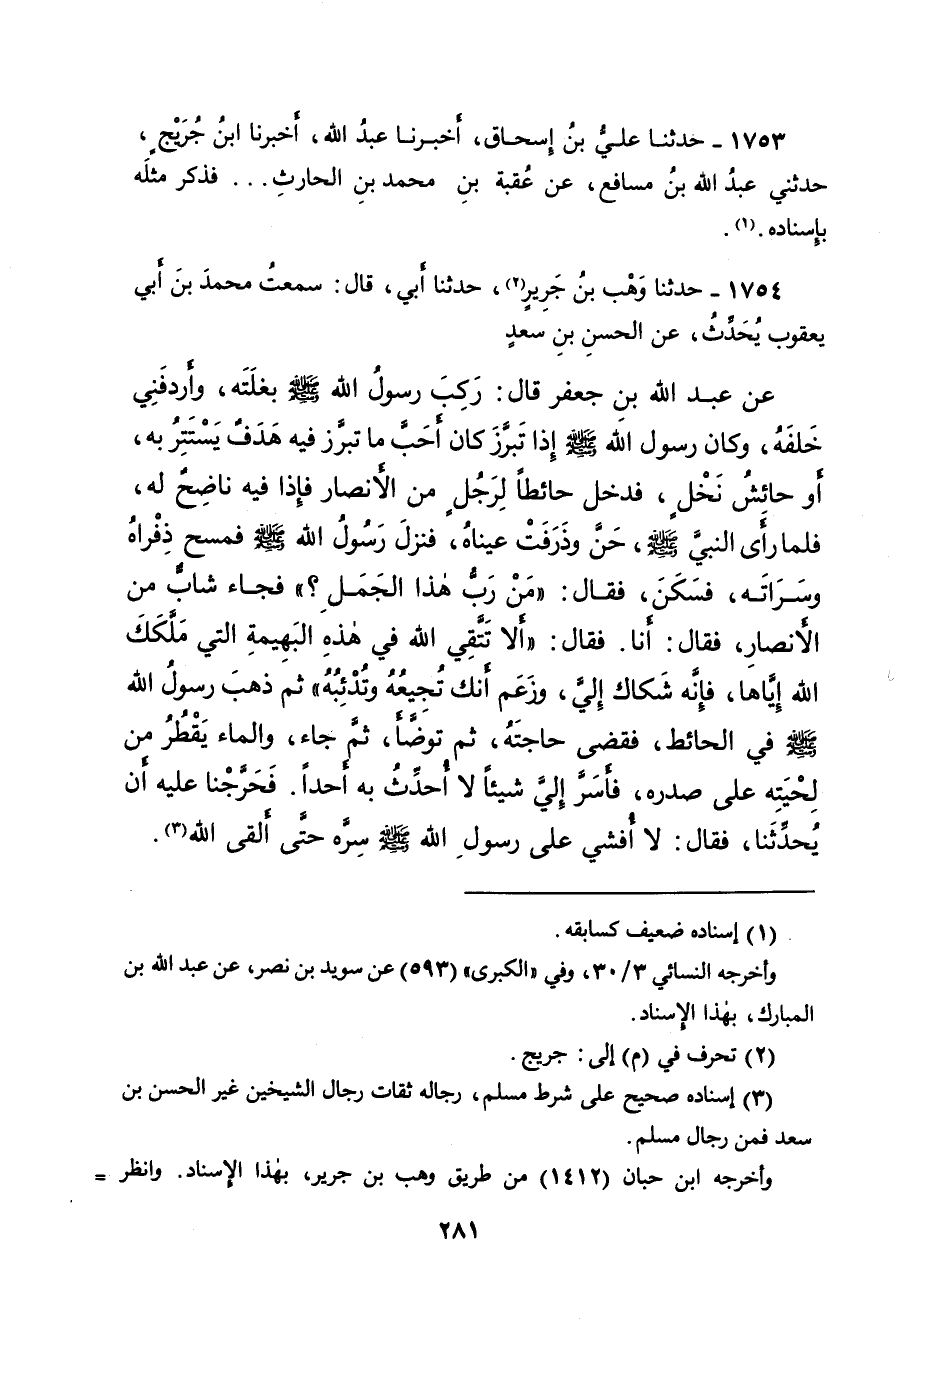 ١٧٥٣ ـ حدثنا عليُّ بنُ إسحاق، أَخبرنا عبدُ الله، أَخبرنا ابنُ جُرَيْجٍ،
حدثني عبدُ الله بنُ مسافع، عن عُقبة بنِ محمد بنِ الحارثِ... فذكر مثلَه
بإِسناده.(١).
١٧٥٤ ـ حدثنا وَهْب بنُ جَرِيرٍ(٢)، حدثنا أَبي، قال: سمعتُ محمدَ بنَ أَبي
يعقوب يُحَدِّثُ، عن الحسنِ بنِ سعدٍ
عن عبد الله بنِ جعفر قال: رَكِبَ رسولُ الله ﷺ بغلَتَه، وأَردفَنِي
خَلفَهُ، وكان رسول الله ﷺ إِذا تَبرَّزَ كان أَحَبَّ ما تبرَّز فيه هَدَفٌ يَسْتَتِرُ به،
أَو حائِشُ نَخْلٍ، فدخل حائطاً لِرَجُلٍ من الأَنصار فإِذا فيه ناضِحٌ له،
فلما رأَى النبيَّ ﷺ، حَنَّ وذَرَفَتْ عيناهُ، فنزلَ رَسُولُ الله ﷺ فمسح ذِفْراهُ
وسَرَاتَه، فسَكَنَ، فقال: «مَنْ رَبُّ هٰذا الجَمَلِ؟» فجاء شابٌّ من
الأَنصارِ، فقال: أَنا. فقال: «أَلا تَتَّقِي الله في هٰذِهِ البَهِيمةِ التي مَلَّكَكَ
الله إِيَّاها، فإِنَّه شَكاك إِليَّ، وزَعَم أَنك تُجِيعُهُ وتُدْئِبُهُ» ثم ذهبَ رسولُ الله
ﷺ في الحائط، فقضى حاجتَهُ، ثم توضَّأَ، ثمَّ جاء، والماء يَقْطُرُ من
لِحْيَتِه على صدره، فأَسَرَّ إِليَّ شيئاً لا أُحدِّثُ به أَحداً. فَحَرَّجْنا عليه أَن
يُحدِّثَنا، فقال: لا أُفشي على رسولِ الله ﷺ سِرَّه حتَّى أَلقى الله(٣).
(١) إسناده ضعيف كسابقه.
وأخرجه النسائي ٣٠/٣، وفي «الكبرى» (٥٩٣) عن سويد بن نصر، عن عبد الله بن
المبارك، بهٰذا الإسناد.
(٢) تحرف في (م) إلى: جريج.
(٣) إسناده صحيح على شرط مسلم، رجاله ثقات رجال الشيخين غير الحسن بن
سعد فمن رجال مسلم.
وأخرجه ابن حبان (١٤١٢) من طريق وهب بن جرير، بهٰذا الإسناد. وانظر =
٢٨١